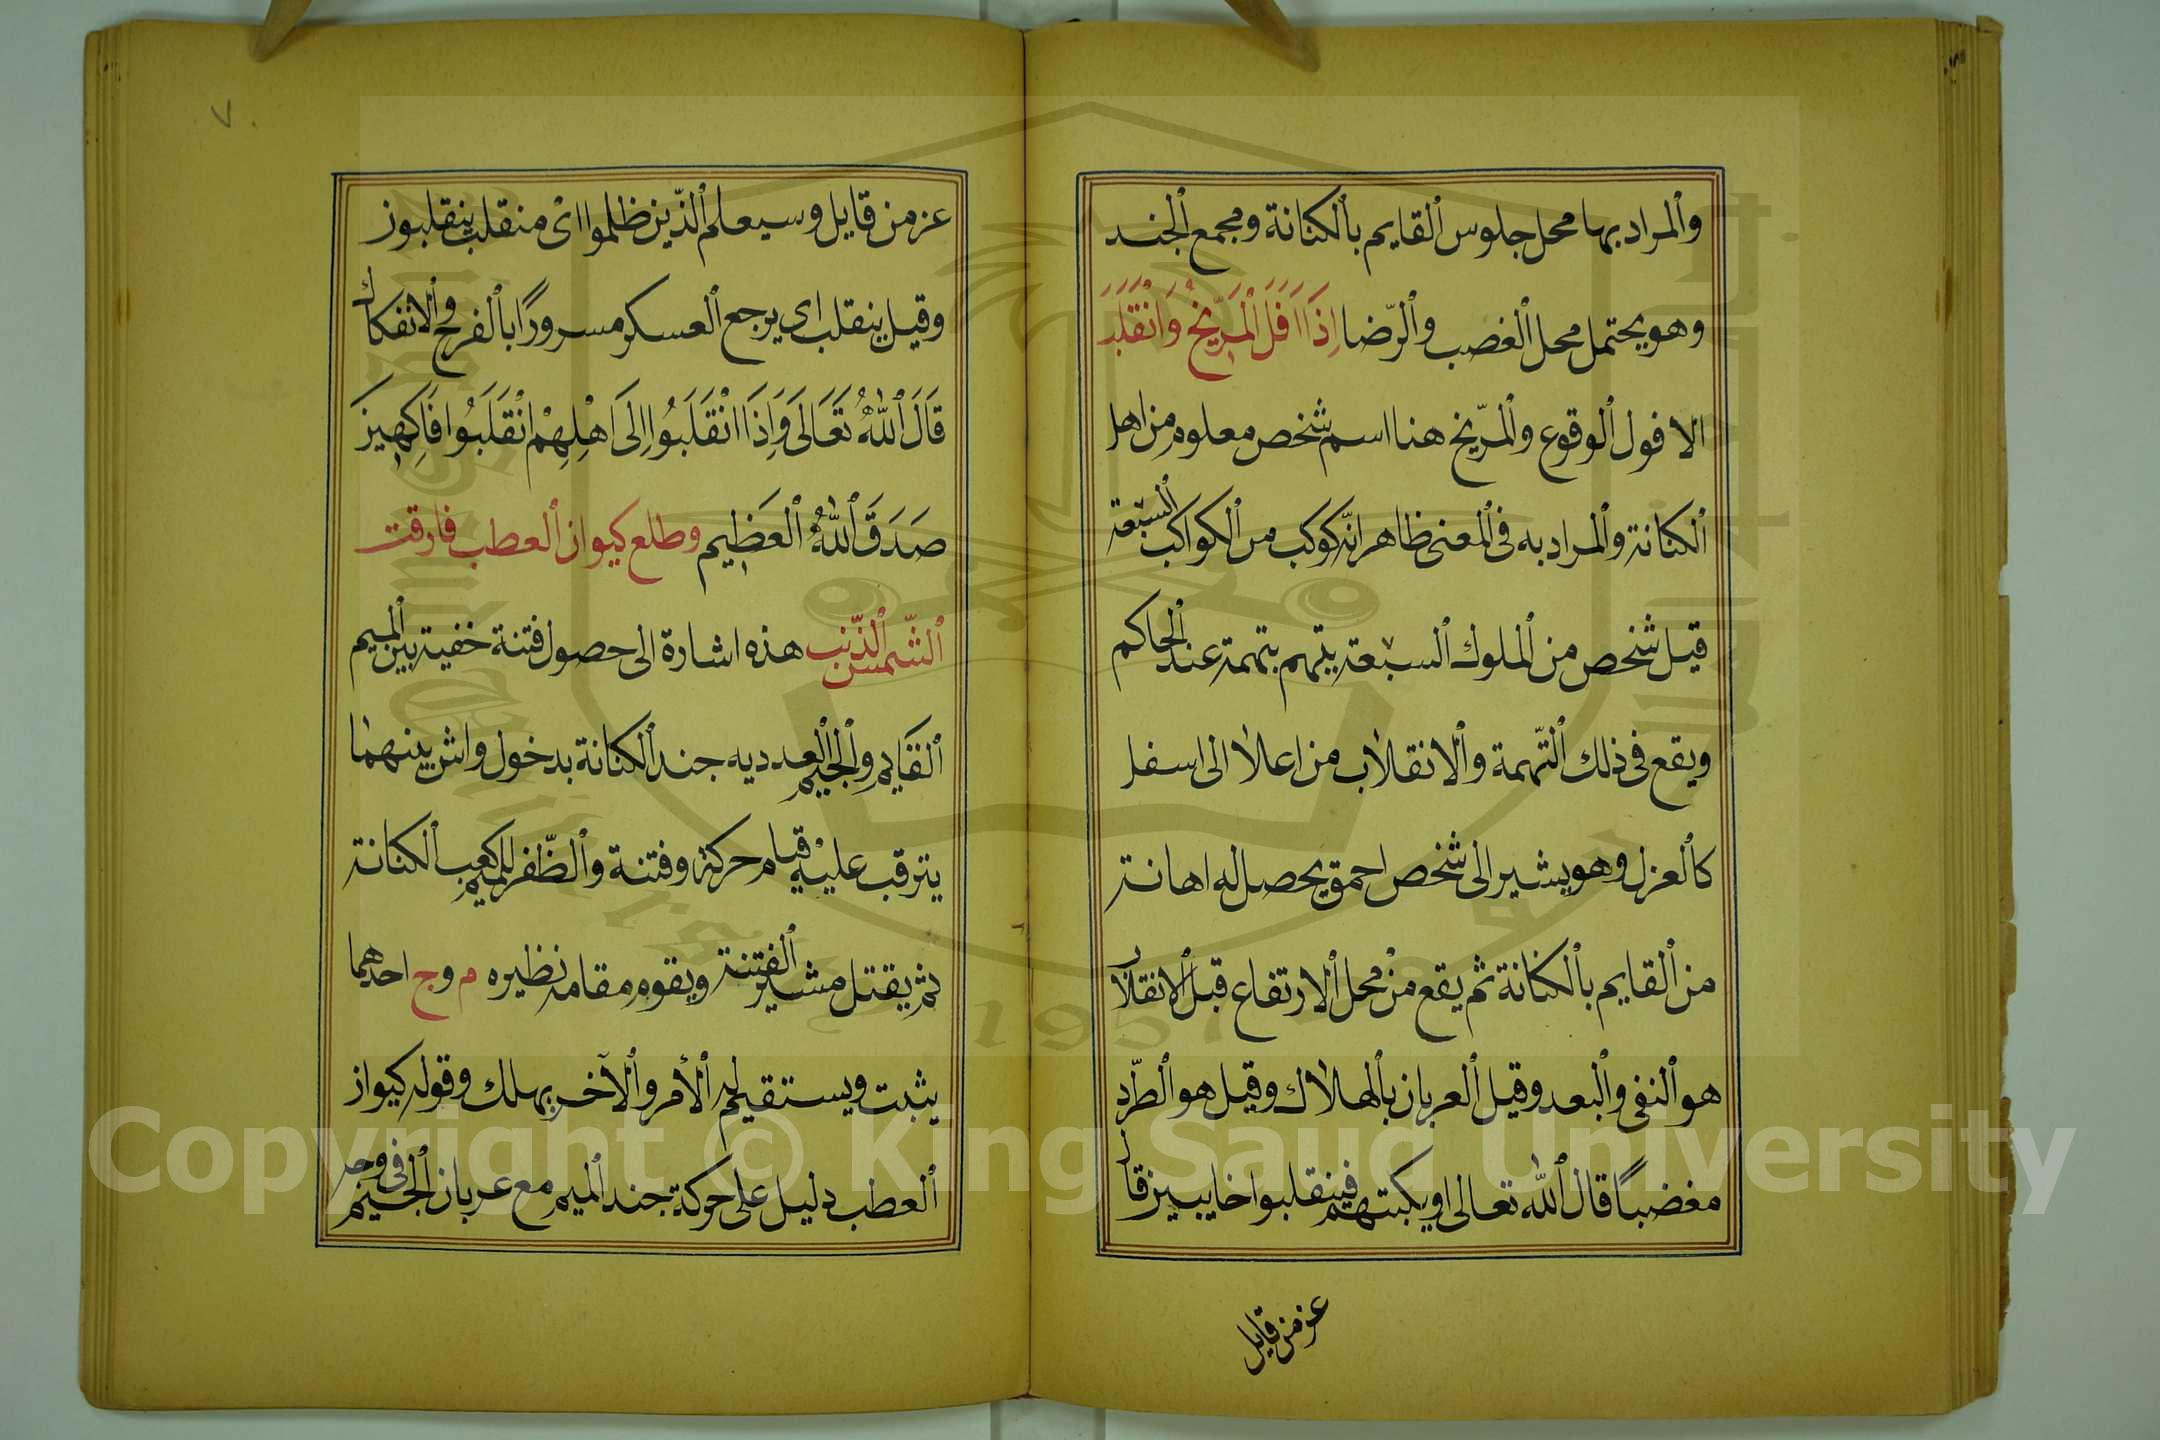 والمراد بها محل جلوس القايم بالكنانة ومجمع الجند
وهو يحتمل محل الغصب والرّضا اِذَا اَفَلَ الْمَرِّيخُ وَانْقَلَبَ
الافول الوقوع والمرّيخ هنا اسم شخص معلوم من اهل
الكنانة والمراد به فى المعنى ظاهر انّه كوكب من الكواكب السّبعة
قيل شخص من الملوك السبعة يتهم بتهمة عند الحاكم
ويقع فى ذلك التّهمة والانقلاب من اعلا الى اسفل
كالعزل وهو يشير الى شخص احمق يحصل له اهانة
من القايم بالكنانة ثم يقع من محل الارتفاع قبل الانقلاب
هو النفى والبعد وقيل العربان بالهلاك وقيل هو الطّرد
مغضبًا قال الله تعالى او يكبتهم فينقلبوا خايبين قال
عز من قايل
عز من قايل وسيعلم الذّين ظلموا اى منقلب ينقلبون
وقيل ينقلب اى يرجع العسكر مسرورًا بالفرح والانفكاك
قَالَ اللهُ تَعَالَى وَاِذَا انْقَلَبُوا اِلَى اَهْلِهِمْ انْقَلَبُوا فَاكِهِينَ
صَدَقَ اللهُ الْعَظِيم وطلع كيوان العطب فارقت
الشّمس الذّنب هذه اشارة الى حصول فتنة خفية بين الميم
القايم والجيم العددية جند الكنانة بدخول واش بينهما
يترقب عليه قيام حركة وفتنة والظّفر للميم كعب الكنانة
ثم يقتل مشير الفتنة ويقوم مقامه نظيره م وج احدهما
يثبت ويستقيم له الأمر والآخر يهلك وقوله كيوان
العطب دليل على حركة جند الميم مع عربان الجيم فى وجه
٧
Copyright © King Saud University
1957